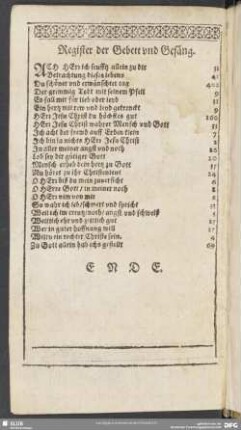 Register der Gebett vnd Gesäng.
ACH HErr ich seuffz allein zu dir 51
Betrachtung dieses lebens 41
Du schöner vnd erwünschter tag 402
Der grimmig Todt mit seinem Pfeil 9
Es fall mir für lieb oder leyd 51
Ein hertz mit rew vnd leyd
HErr Jesu Christ du höchstes gut 160
HErr Jesu Christ wahrer Mensch vnd Gott 51
Ich acht der frewd auff Erden klein 7
Ich bin ja meines HErr Jesu Christ 2
In aller meiner angst vnd noth
Lob sey dir gütiger Gott
Mensch erheb dein hertz zu Gott
Nu höret zu ihr Christenleut 14
O HErr biß du mein zuversicht 6
O HErre Gott / in meiner noth 2
O HErr nim von mir
So wahr ich leb / schwert vnd spricht
Weil ich im creutz / noth / angst vnd schweiß 1
Wer in guter hoffnung will 17
Wiltu ein rechter Christe sein. 4
Zu Gott allein hab ichs gestellt 69
E N D E.
SLUB
DFG